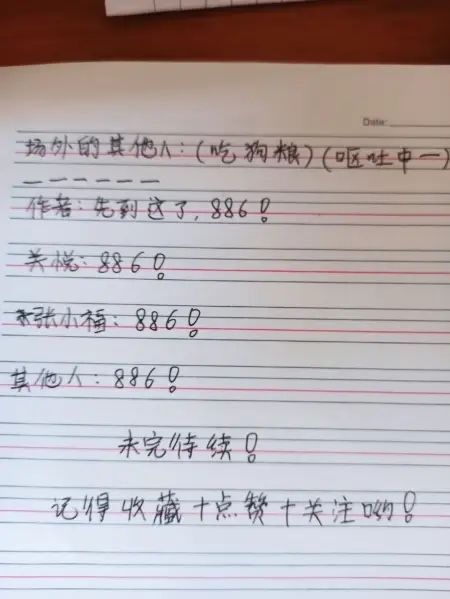 Date:
场外的其他人:(吃狗粮)(呕吐中一)
——————
作者:先到这了,886!
关悦:886!
张小福:886!
其他人:886!
未完待续!
记得收藏+点赞+关注哟!